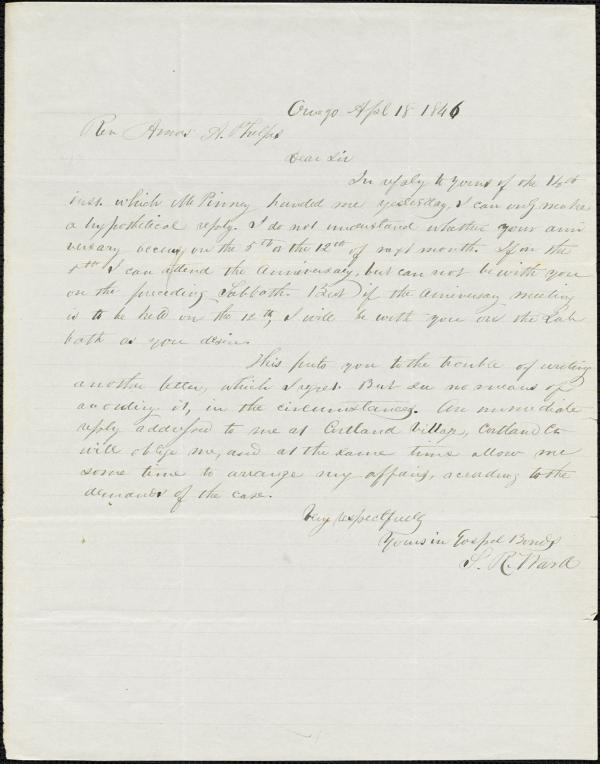 Owego Apl 18 1846
Rev Amos A. Phelps
Dear Sir
In reply to yours of the 16th
inst. which Mr Pinney handed me yesterday, I can only make
a hypothetical reply. I do not understand whether your anni
versary occurs on the 5th or the 12th of next month. If on the
5th I can attend the Anniversary, but can not be with you
on the preceding Sabbath. But if the Aniversary meeting
is to be held on the 12th, I will be with you on the Sab
bath as you desire.
This puts you to the trouble of writing
another letter, which I regret. But see no means of
avoiding it, in the circumstances. An immediate
reply addressed to me at Cortland Village, Cortland Co
will oblige me, and at the same time allow me
some time to arrange my affairs, acording to the
demands of the case.
Very respectfully
Yours in Gospel Bonds
S. R. Ward